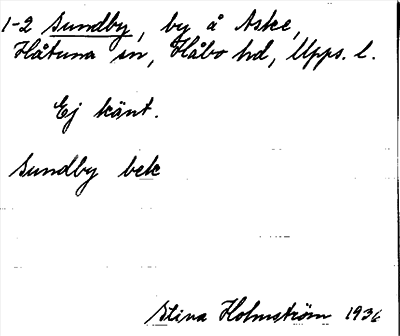 1-2 Sundby, by å Aske,
Håtuna sn, Håbo hd, Upps. l.
Ej känt.
Sundby bek
Stina Holmström 1936